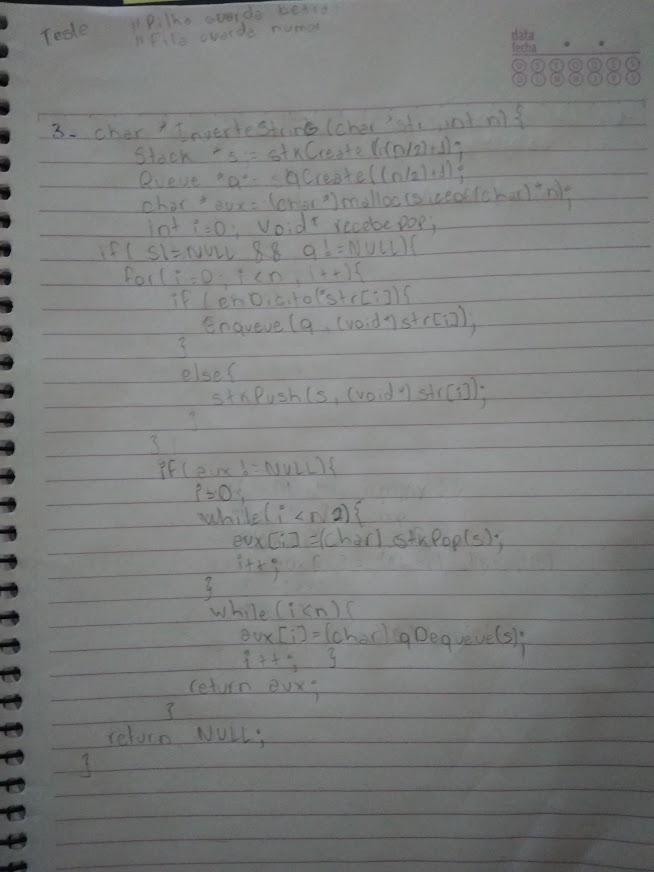 Teste "Pilha guarda
"Fila guarda
data
fecha
3- char *InverteString(char *str, int n){
Stack *s = stkCreate((n/2)+1);
Queue *q = qCreate((n/2)+1);
char * aux = (char*)malloc(sizeof(char)*n);
int i=0; void* recebepop;
if( s!=NULL && q!=NULL){
for(i=0; i<n, i++){
if (enDigito(*str[i]){
Enqueue(q, (void*)str[i]);
}
else{
stkPush(s, (void*)str[i]);
}
}
if(aux!=NULL){
i=0;
while(i<n/2){
aux[i]=(char) stkPop(s);
i++;
}
while(i<n){
aux[i]=(char) qDequeue(s);
i++; }
return aux;
}
return NULL;
}